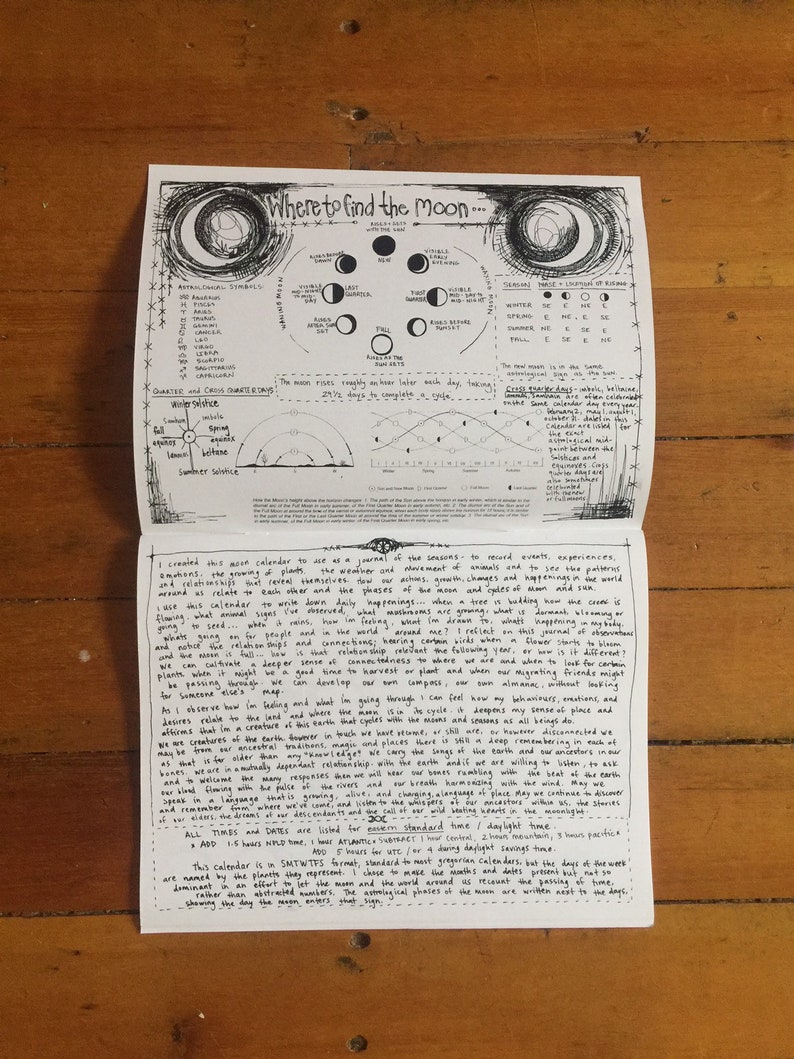 Where to find the Moon...
RISES + SETS
WITH THE SUN
NEW
RISES BEFORE
DAWN
VISIBLE
EARLY
EVENING
WANING MOON
WAXING MOON
VISIBLE
MID-NIGHT
TO MID-
DAY
LAST
QUARTER
FIRST
QUARTER
VISIBLE
MID-DAY TO
MID-NIGHT
RISES
AFTER SUN
SET
RISES BEFORE
SUNSET
FULL
RISES AS THE
SUN SETS
ASTROLOGICAL SYMBOLS:
♒ AQUARIUS
♓ PISCES
♈ ARIES
♉ TAURUS
♊ GEMINI
♋ CANCER
♌ LEO
♍ VIRGO
♎ LIBRA
♏ SCORPIO
♐ SAGITTARIUS
♑ CAPRICORN
SEASON PHASE + LOCATION OF RISING
WINTER SE E NE E
SPRING E NE E SE
SUMMER NE E SE E
FALL E SE E NE
The new moon is in the same
astrological sign as the sun.
The moon rises roughly an hour later each day, taking
29 1/2 days to complete a cycle.
QUARTER and CROSS QUARTER DAYS
Winter Solstice
Samhain
imbolc
fall
equinox
Spring
equinox
lammas
beltane
Summer Solstice
E S W
Winter Spring Summer Autumn
Sun and New Moon First Quarter Full Moon Last Quarter
Cross quarter days - imbolc, beltaine,
lammas, samhain are often celebrated
on the same calendar day every year.
february 2, may 1, august 1,
october 31. dates in this
Calendar are listed for
the exact
astrological mid-
point between the
Solstices and
equinoxes. Cross
quarter days are
also sometimes
celebrated
with the new
or full moons.
How the Moon's height above the horizon changes. 1. The path of the Sun above the horizon in early winter, which is similar to the
diurnal arc of the Full Moon in early summer, of the First Quarter Moon in early autumn, etc. 2. The diurnal arc of the Sun and of
the Full Moon at around the time of the vernal or autumnal equinox, when each body stays above the horizon for 12 hours; it is similar
to the path of the First or the Last Quarter Moon at around the time of the summer or winter solstice. 3. The diurnal arc of the Sun
in early summer, of the Full Moon in early winter, of the First Quarter Moon in early spring, etc.
I created this moon calendar to use as a journal of the seasons - to record events, experiences,
emotions, the growing of plants, the weather and movement of animals and to see the patterns
and relationships that reveal themselves. How our actions, growth, changes and happenings in the world
around us relate to each other and the phases of the moon and cycles of moon and sun.
I use this calendar to write down daily happenings... when a tree is budding how the creek is
flowing. what animal signs i've observed, what mushrooms are growing, what is dormant, blooming or
going to seed... when it rains, how i'm feeling, what i'm drawn to, whats happening in my body.
Whats going on for people and in the world around me? I reflect on this journal of observations
and notice the relationships and connections; hearing certain birds when a flower starts to bloom
and the moon is full... how is that relationship relevant the following year, or how is it different?
We can cultivate a deeper sense of connectedness to where we are and when to look for certain
plants, when it might be a good time to harvest or plant and when our migrating friends might
be passing through. We can develop our own compass, our own almanac, without looking
for someone else's map.
As I observe how i'm feeling and what im going through I can feel how my behaviours, emotions, and
desires relate to the land and where the moon is in its cycle. it deepens my sense of place and
affirms that i'm a creature of this earth that cycles with the moons and seasons as all beings do.
We are creatures of the earth. However in touch we have become, or still are, or however disconnected we
may be from our ancestral traditions, magic and places there is still a deep remembering in each of
us that is far older than any "Knowledge". We carry the songs of the earth and our ancestors in our
bones. we are in a mutually dependant relationship with the earth and if we are willing to listen, to ask
and to welcome the many responses then we will hear our bones rumbling with the beat of the earth
our blood flowing with the pulse of the rivers and our breath harmonizing with the wind. May we
Speak in a language that is growing, alive, and changing, a language of place. May we continue to discover
and remember from where we've come, and listen to the whispers of our ancestors within us, the stories
of our elders, the dreams of our descendants and the call of our wild beating hearts in the moonlight.
ALL TIMES and DATES are listed for eastern standard time / daylight time.
× ADD 1.5 hours NFLD time, 1 hour ATLANTIC × SUBTRACT 1 hour central, 2 hours mountain, 3 hours pacific ×
ADD 5 hours for UTC / or 4 during daylight savings time.
This calendar is in SMTWTFS format, standard to most gregorian calendars, but the days of the week
are named by the planets they represent. I chose to make the months and dates present but not so
dominant in an effort to let the moon and the world around us recount the passing of time,
rather than abstracted numbers. The astrological phases of the moon are written next to the days,
showing the day the moon enters that sign.